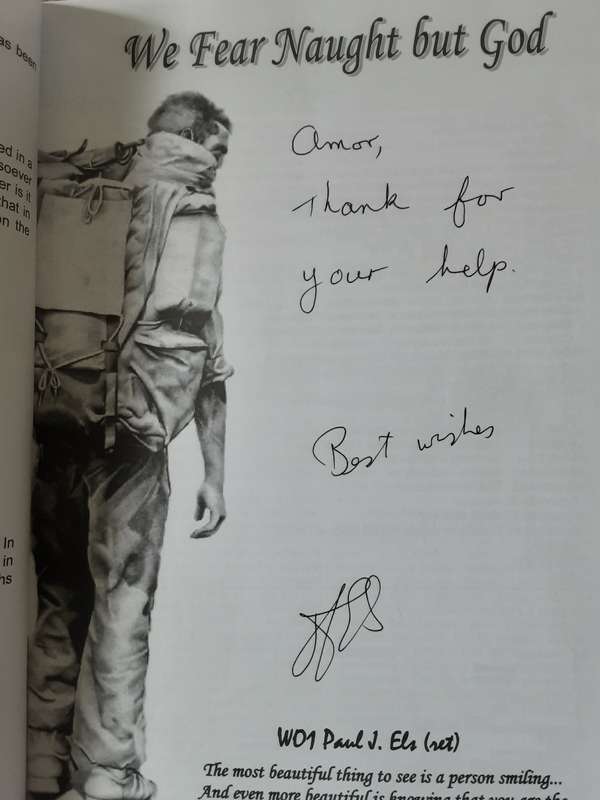 We Fear Naught but God
as been
ed in a
soever
er is it
that in
on the
In
in
hs
Amor,
Thank for
your help.
Best wishes
WO1 Paul J. Els (ret)
The most beautiful thing to see is a person smiling...
And even more beautiful is knowing that you are the